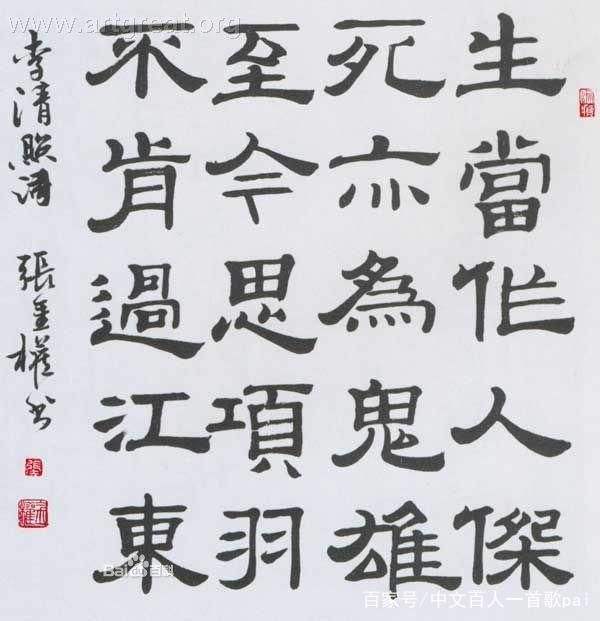 生當作人傑
死亦為鬼雄
至今思項羽
不肯過江東
李清照詩 張權书
www.artgreat.org
Bai百科
百家号/中文百人一首歌pai